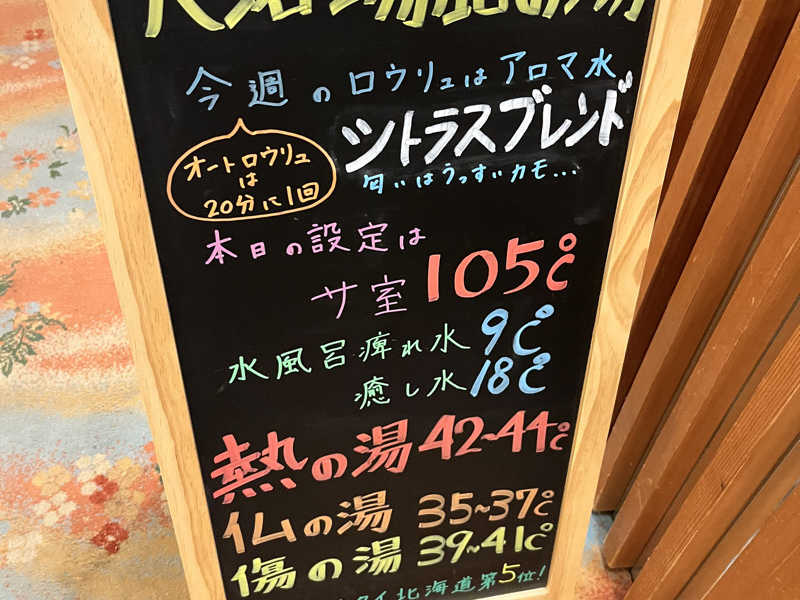 今週のロウリュはアロマ水
シトラスブレンド
オートロウリュ
は
20分に1回
匂いはうっすいカモ...
本日の設定は
サ室 105℃
水風呂痺れ水 9℃
癒し水 18℃
熱の湯 42~44℃
仏の湯 35~37℃
傷の湯 39~41℃
北海道第5位!